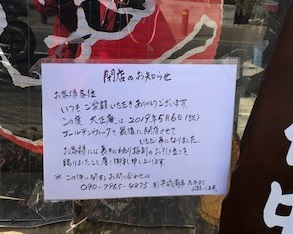 閉店のお知らせ
お客様各位
いつも ご愛顧いただき ありがとうございます。
この度 大正庵は 2019年5月6日
ゴールデンウィークを最後に閉店させて
いただく事になりました。
お客様には長きにわたり格別のお引き立てを
賜りましたこと厚く御礼申し上げます。
※この件に関するお問い合わせは
090-7965-4275
お願いします。